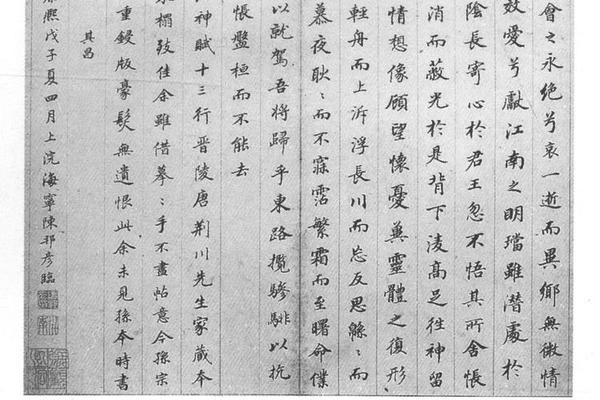 會之永絕兮哀一逝而異鄉無微情
效愛兮獻江南之明璫雖潛處於
陰長寄心於君王忽不悟其所舍悵
消而蔽光於是背下淩高足往神留
情想像顧望懷憂冀靈體之復形
輕舟而上泝浮長川而忘反思緜〻而
慕夜耿〻而不寐霑繁霜而至曙命僕
以就駕吾將歸乎東路攬驂騑以抗
悵盤桓而不能去
神賦十三行晉陵唐荊川先生家藏本
榻發佳余雖借摹〻手不盡帖意今孫宗
重鋟版豪髮無遺恨此余未見孫本時書
其昌
熙戊子夏四月上浣海寧陳邦彥臨